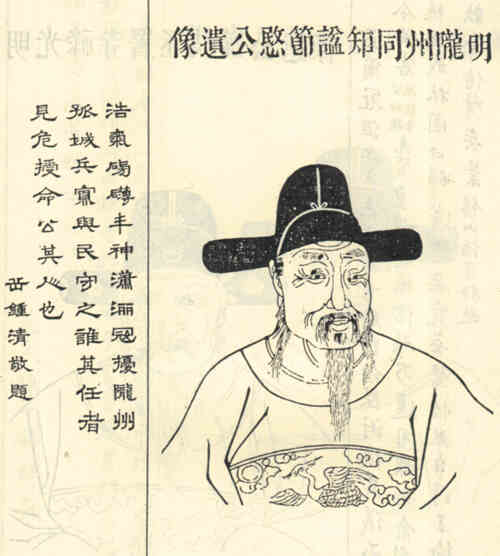 明隴州同知諡節愍公遺像
浩氣磅礴丰神瀟洒寇擾隴州
孤城兵寡與民守之誰其任者
見危授命公其人也
岳鍾清敬題